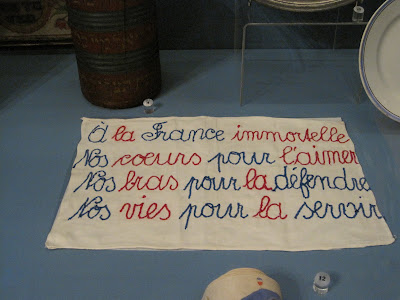 À la France immortelle
Nos coeurs pour l'aimer
Nos bras pour la défendre
Nos vies pour la servir
12